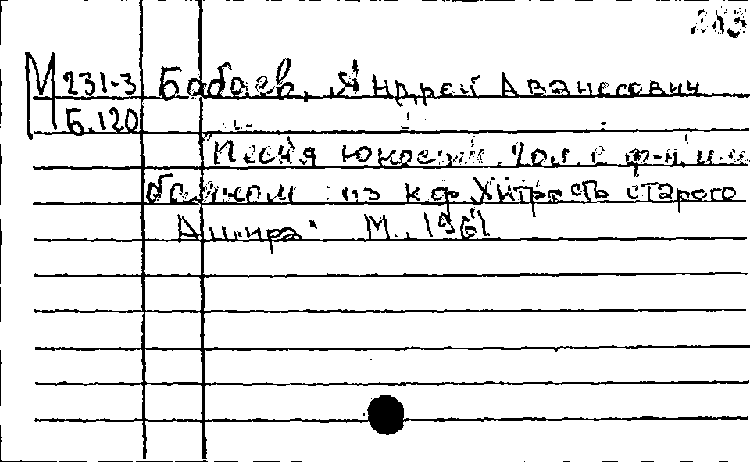 283
М 231-3 Бабаев, Андрей Аванесович
Б.120
Песня юности. Гол. с ф-п. или
баяном из к.ф. "Хитрость старого
Ашира" М., 1961